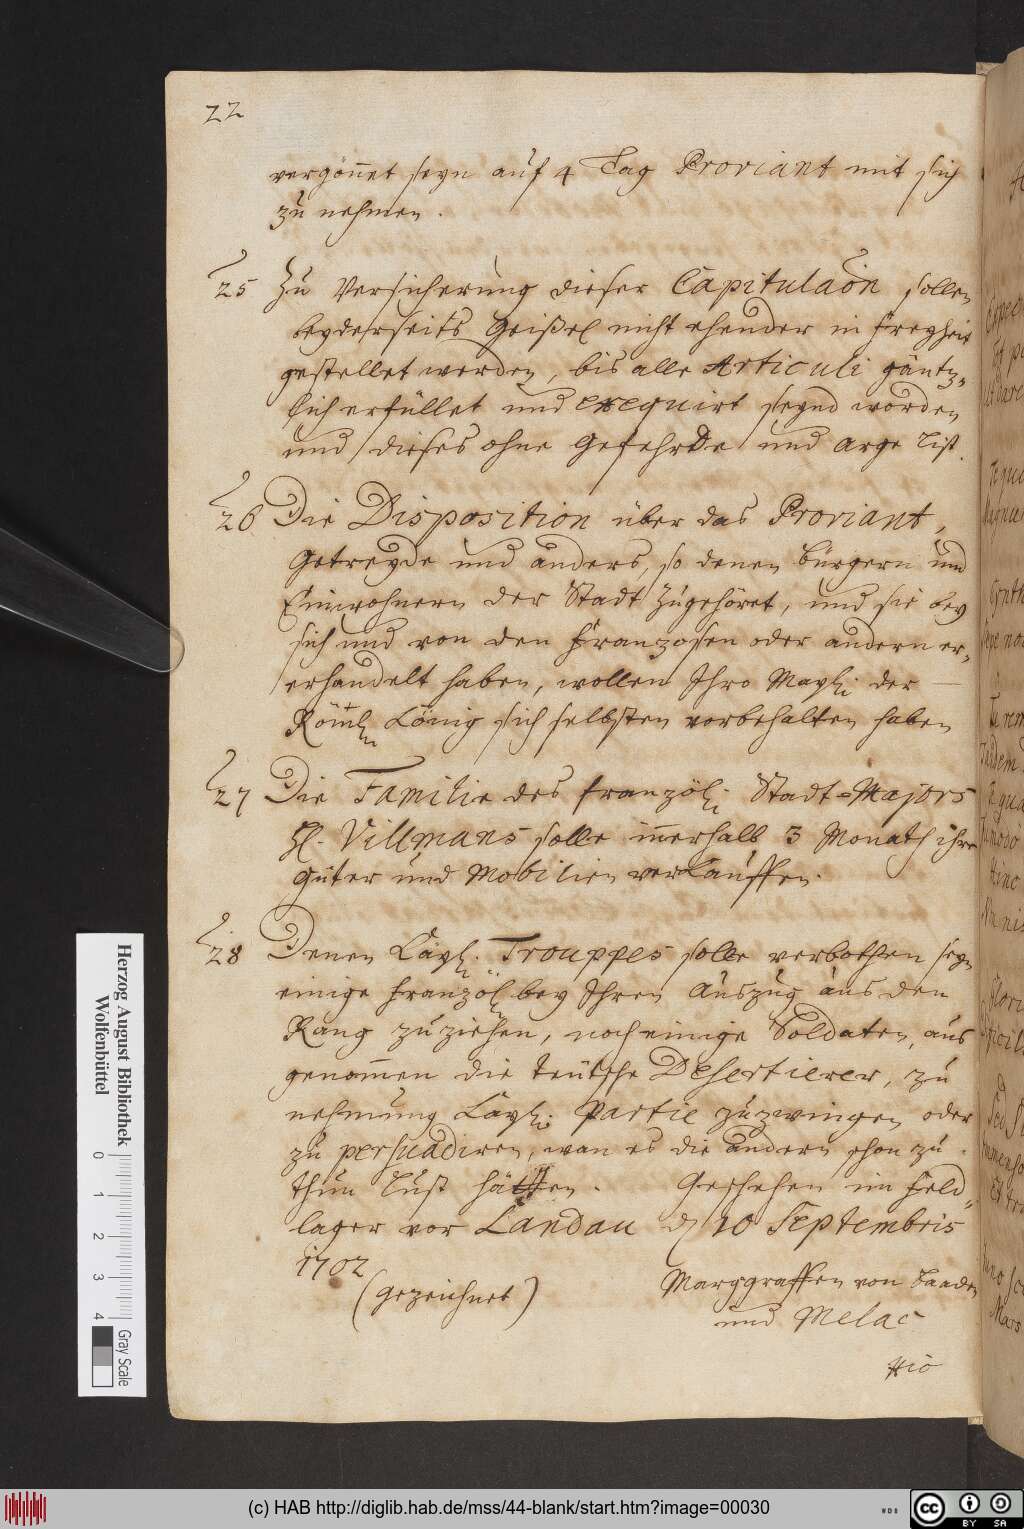 22
vergönnet seyn auf 4 Tag Proviant mit sich
zu nehmen.
25 Zu Versicherung dieser Capitulaõn sollen
beyderseits Geißel nicht ehender in freyheit
gestellet werden, bis alle Articuli gäntz-
lich erfüllet und exequirt seynd worden
und dieses ohne Gefehrde und arge List.
26 Die Disposition über das Proviant,
Getreyde und anders, so denen bürgern und
Einwohnern der Stadt zugehöret, und sie bey
sich und von den Franzosen oder andern er-
erhandelt haben, wollen Ihro Mayl: der
Röml König sich selbsten vorbehalten haben
27 Die Familie des französl: Stadt-Majors
Hl. Villmans solle innerhalb 3 Monath ihre
güter und Mobilien verkauffen.
28 Denen Kayl: Trouppes solle verbothen seyn
einige französl: bey Ihren Auszug aus den
Rang zu ziehen, noch einige Soldaten, aus
genommen die teütsche Desertierer, zu
nehmung Kayl: Partie zu zwingen oder
zu persuadiren, wan es die andern schon zu
thun Lust hätten. Geschehen im Feld-
lager vor Landau d 10 Septembris
1702
(gezeichnet) Marggraffen von Baaden
und Melac
Hio
Herzog August Bibliothek
Wolfenbüttel
0 1 2 3 4
Gray Scale
(c) HAB http://diglib.hab.de/mss/44-blank/start.htm?image=00030
WDB
cc BY SA